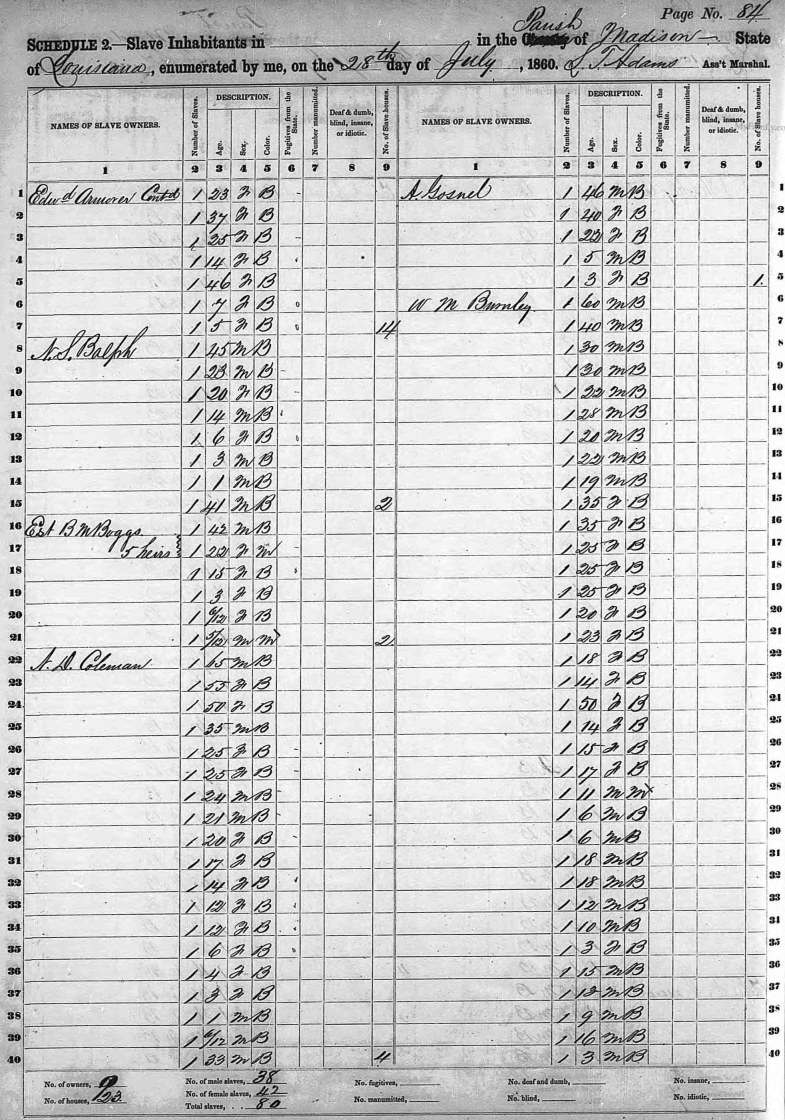 Page No. 84
SCHEDULE 2.—Slave Inhabitants in in the Parish County of Madison State
of Louisiana, enumerated by me, on the 28th day of July, 1860. L T Adams Ass't Marshal.
NAMES OF SLAVE OWNERS. Number of Slaves. DESCRIPTION. Age. Sex. Color. Fugitives from the State. Number manumitted. Deaf & dumb, blind, insane, or idiotic. No. of Slave houses. NAMES OF SLAVE OWNERS. Number of Slaves. DESCRIPTION. Age. Sex. Color. Fugitives from the State. Number manumitted. Deaf & dumb, blind, insane, or idiotic. No. of Slave houses.
1 2 3 4 5 6 7 8 9 1 2 3 4 5 6 7 8 9
1 Edwd Armorer Contd 1 23 F B A. Gosnel 1 46 M B 1
2 1 37 F B 1 40 F B 2
3 1 25 F B 1 22 F B 3
4 1 14 F B 1 5 M B 4
5 1 46 F B 1 3 F B 1 5
6 1 7 F B W M Burnley 1 60 M B 6
7 1 5 F B 14 1 40 M B 7
8 N. S. Balph 1 45 M B 1 30 M B 8
9 1 23 M B 1 30 M B 9
10 1 20 F B 1 22 M B 10
11 1 14 M B 1 28 M B 11
12 1 6 F B 1 20 M B 12
13 1 3 M B 1 22 M B 13
14 1 1 M B 1 19 M B 14
15 1 41 M B 2 1 35 F B 15
16 Est B M Boggs 1 42 M B 1 35 F B 16
17 5 heirs 1 22 F M 1 25 F B 17
18 1 15 F B 1 25 F B 18
19 1 3 F B 1 25 F B 19
20 1 6/12 F B 1 20 F B 20
21 1 5/12 M M 2 1 23 F B 21
22 N. D. Coleman 1 65 M B 1 18 F B 22
23 1 55 F B 1 14 F B 23
24 1 50 F B 1 50 F B 24
25 1 35 M B 1 14 F B 25
26 1 25 F B 1 15 F B 26
27 1 25 F B 1 17 F B 27
28 1 24 M B 1 11 M M 28
29 1 21 M B 1 6 M B 29
30 1 20 F B 1 6 M B 30
31 1 17 F B 1 18 M B 31
32 1 14 F B 1 18 M B 32
33 1 12 F B 1 12 M B 33
34 1 12 F B 1 10 M B 34
35 1 6 F B 1 3 F B 35
36 1 4 F B 1 15 M B 36
37 1 3 F B 1 12 M B 37
38 1 1 M B 1 9 M B 38
39 1 6/12 M B 1 16 M B 39
40 1 33 M B 4 1 3 M B 40
No. of owners, No. of male slaves, 38 No. fugitives, No. deaf and dumb, No. insane,
No. of houses, 23 No. of female slaves, 42 No. manumitted, No. blind, No. idiotic,
Total slaves, 80